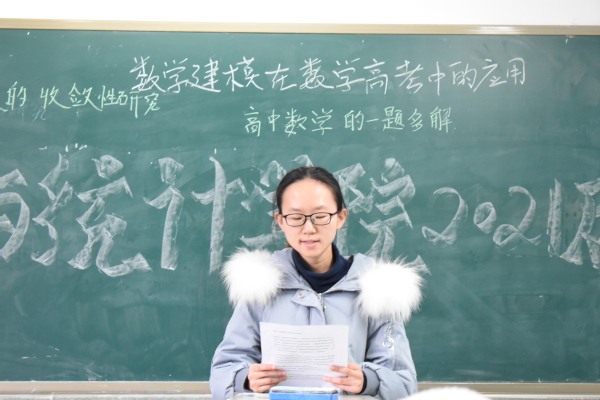 数学建模在数学高考中的应用
的收敛性研究
高中数学的一题多解
统计学院2021届